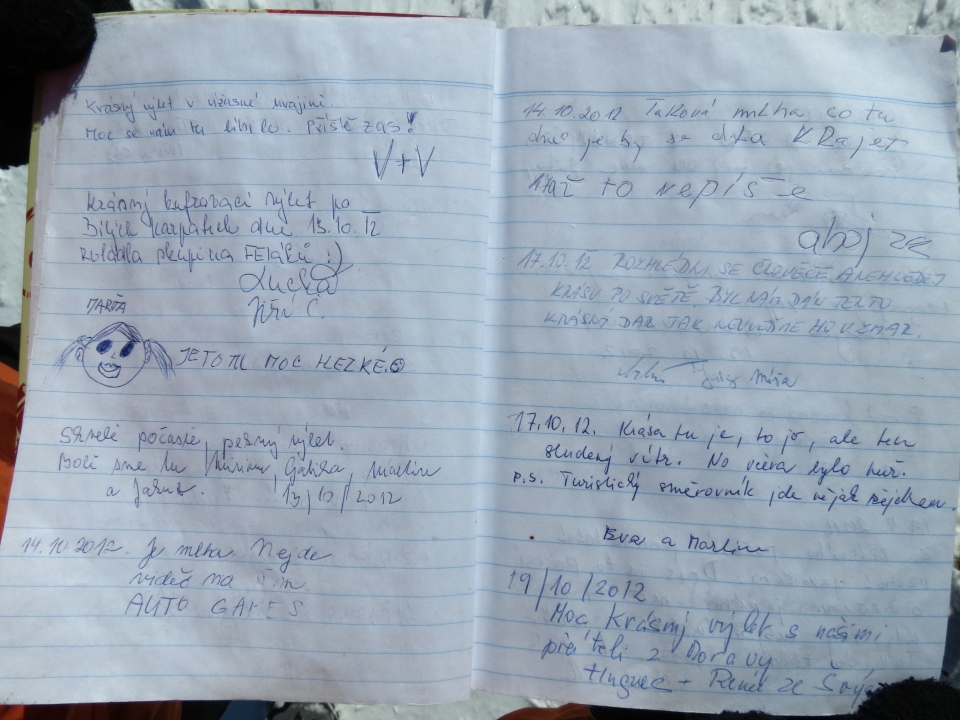 Krásný výlet v úžasné krajině.
Moc se nám tu líbilo. Příště zas!
V+V
Krásný kufrovací výlet po
Bílých Karpatech dne 13.10.12
skupina FELÁKŮ :)
Lucka
Jiří Č.
MARŤA
JE TO TU MOC HEZKÉ
počasie, pekný výlet.
Boli sme tu Gabika, Martin
a Jakub. 13/10/2012
14.10.2012. Je mlha Nejde
vidět na
AUTO GAMES
14.10.2012 Taková mlha co tu
dnes je by se dala KRájet
to nepíše
ahoj
17.10.12 ROZHLÉDNI SE ČLOVĚČE A NEHLEDEJ
KRÁSU PO SVĚTĚ. BYL NÁM DÁN TENTO
KRÁSNÝ DAR TAK NEVEĎME HO VZMAR.
17.10.12. Krása tu je, to jo, ale ten
studený vítr. No včera bylo hůř.
P.S. Turistický směrovník jde nějak
Eva a Martin
19/10/2012
Moc Krásný výlet s našimi
přáteli z Moravy
+ René ze